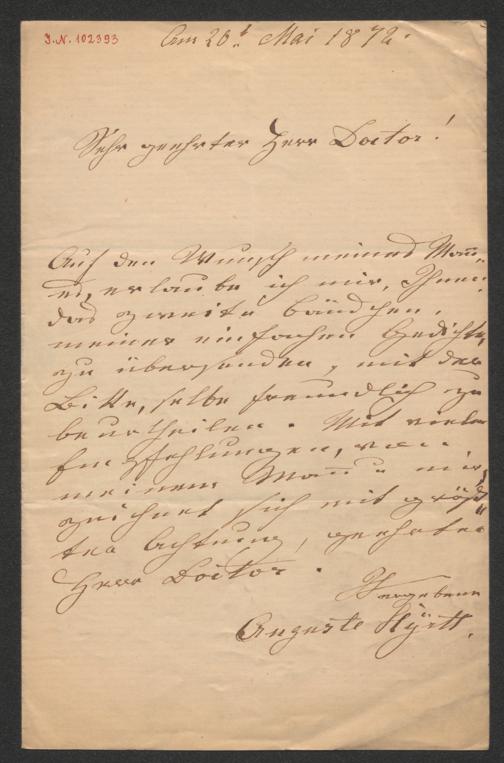 J.N. 102393
Am 20t Mai 1872.
Sehr geehrter Herr Doctor!
Auf den Wunsch meines Mann„
es, erlaube ich mir, Ihnen
das zweite Bändchen,
meiner einfachen Gedichte,
zu übersenden, mit der
Bitte, selbe freundlich zu
beurtheilen. Mit vielen
Empfehlungen, von
meinem Mann u mir,
zeichnet sich mit größ„
ter Achtung, geehrter
Herr Doctor.
Ihre ergebene
Auguste Hyrtl.